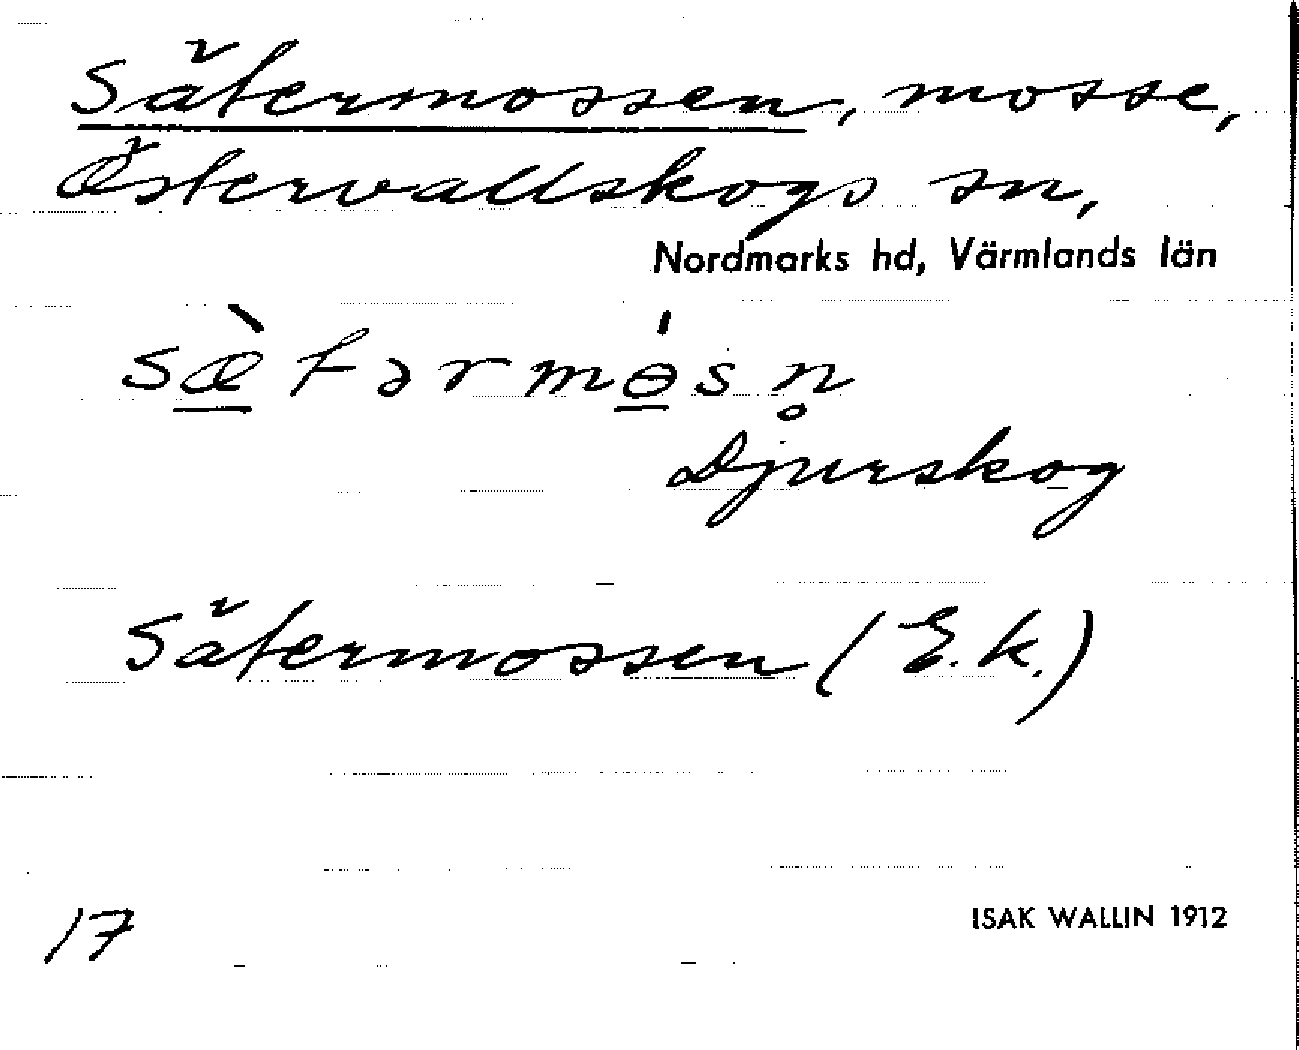 Sätermossen, mosse,
Östervallskogs sn,
Nordmarks hd, Värmlands län
sæ̠̀tərmɵ̠́sn̥
Djurskog
Sätermossen (E.k.)
17
ISAK WALLIN 1912